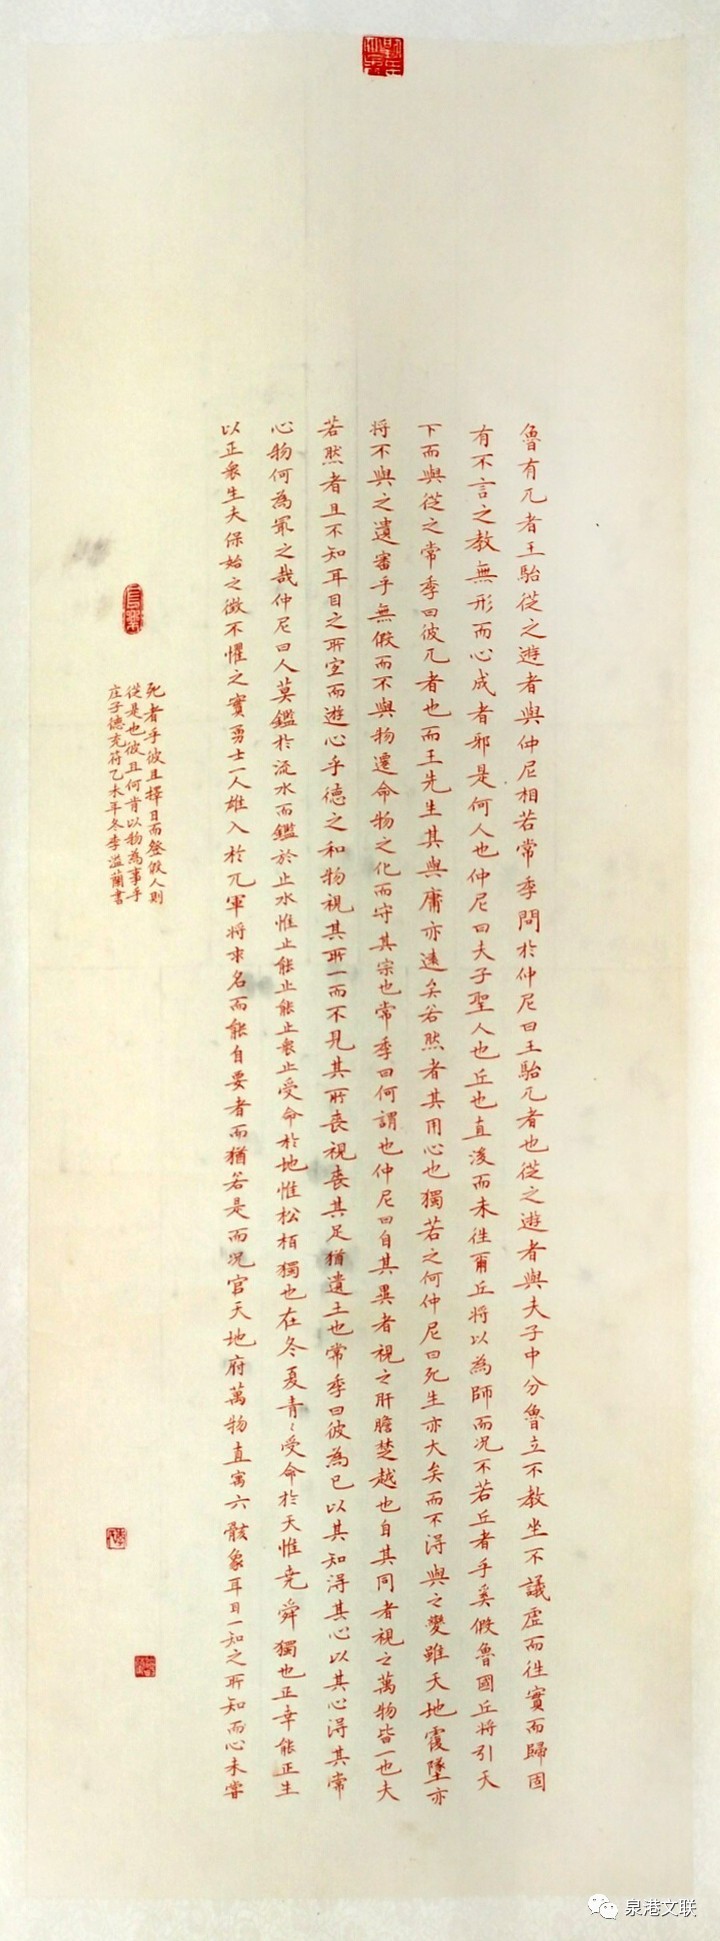 魯有兀者王駘從之遊者與仲尼相若常季問於仲尼曰王駘兀者也從之遊者與夫子中分魯立不教坐不議虛而往實而歸固
有不言之教無形而心成者邪是何人也仲尼曰夫子聖人也丘也直後而未往爾丘将以為師而況不若丘者乎奚假魯國丘将引天
下而與從之常季曰彼兀者也而王先生其與庸亦遠矣若然者其用心也獨若之何仲尼曰死生亦大矣而不得與之變雖天地覆墜亦
将不與之遺審乎無假而不與物遷命物之化而守其宗也常季曰何謂也仲尼曰自其異者視之肝膽楚越也自其同者視之萬物皆一也夫
若然者且不知耳目之所宜而遊心乎德之和物視其所一而不見其所喪視喪其足猶遺土也常季曰彼為己以其知得其心以其心得其常
心物何為冣之哉仲尼曰人莫鑑於流水而鑑於止水惟止能止能止衆止受命於地惟松栢獨也在冬夏青〻受命於天惟堯舜獨也正幸能正生
以正衆生夫保始之徵不懼之實勇士一人雄入於九軍将求名而能自要者而猶若是而況官天地府萬物直寓六骸象耳目一知之所知而心未嘗
死者乎彼且擇日而登假人則
從是也彼且何肯以物為事乎
庄子德充符乙未年冬李溢蘭書
泉港文联